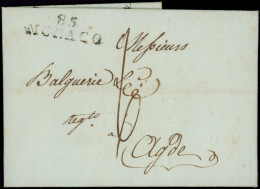 85
MONACO
Messieurs
Balguerie & Cie
negts
a
Agde